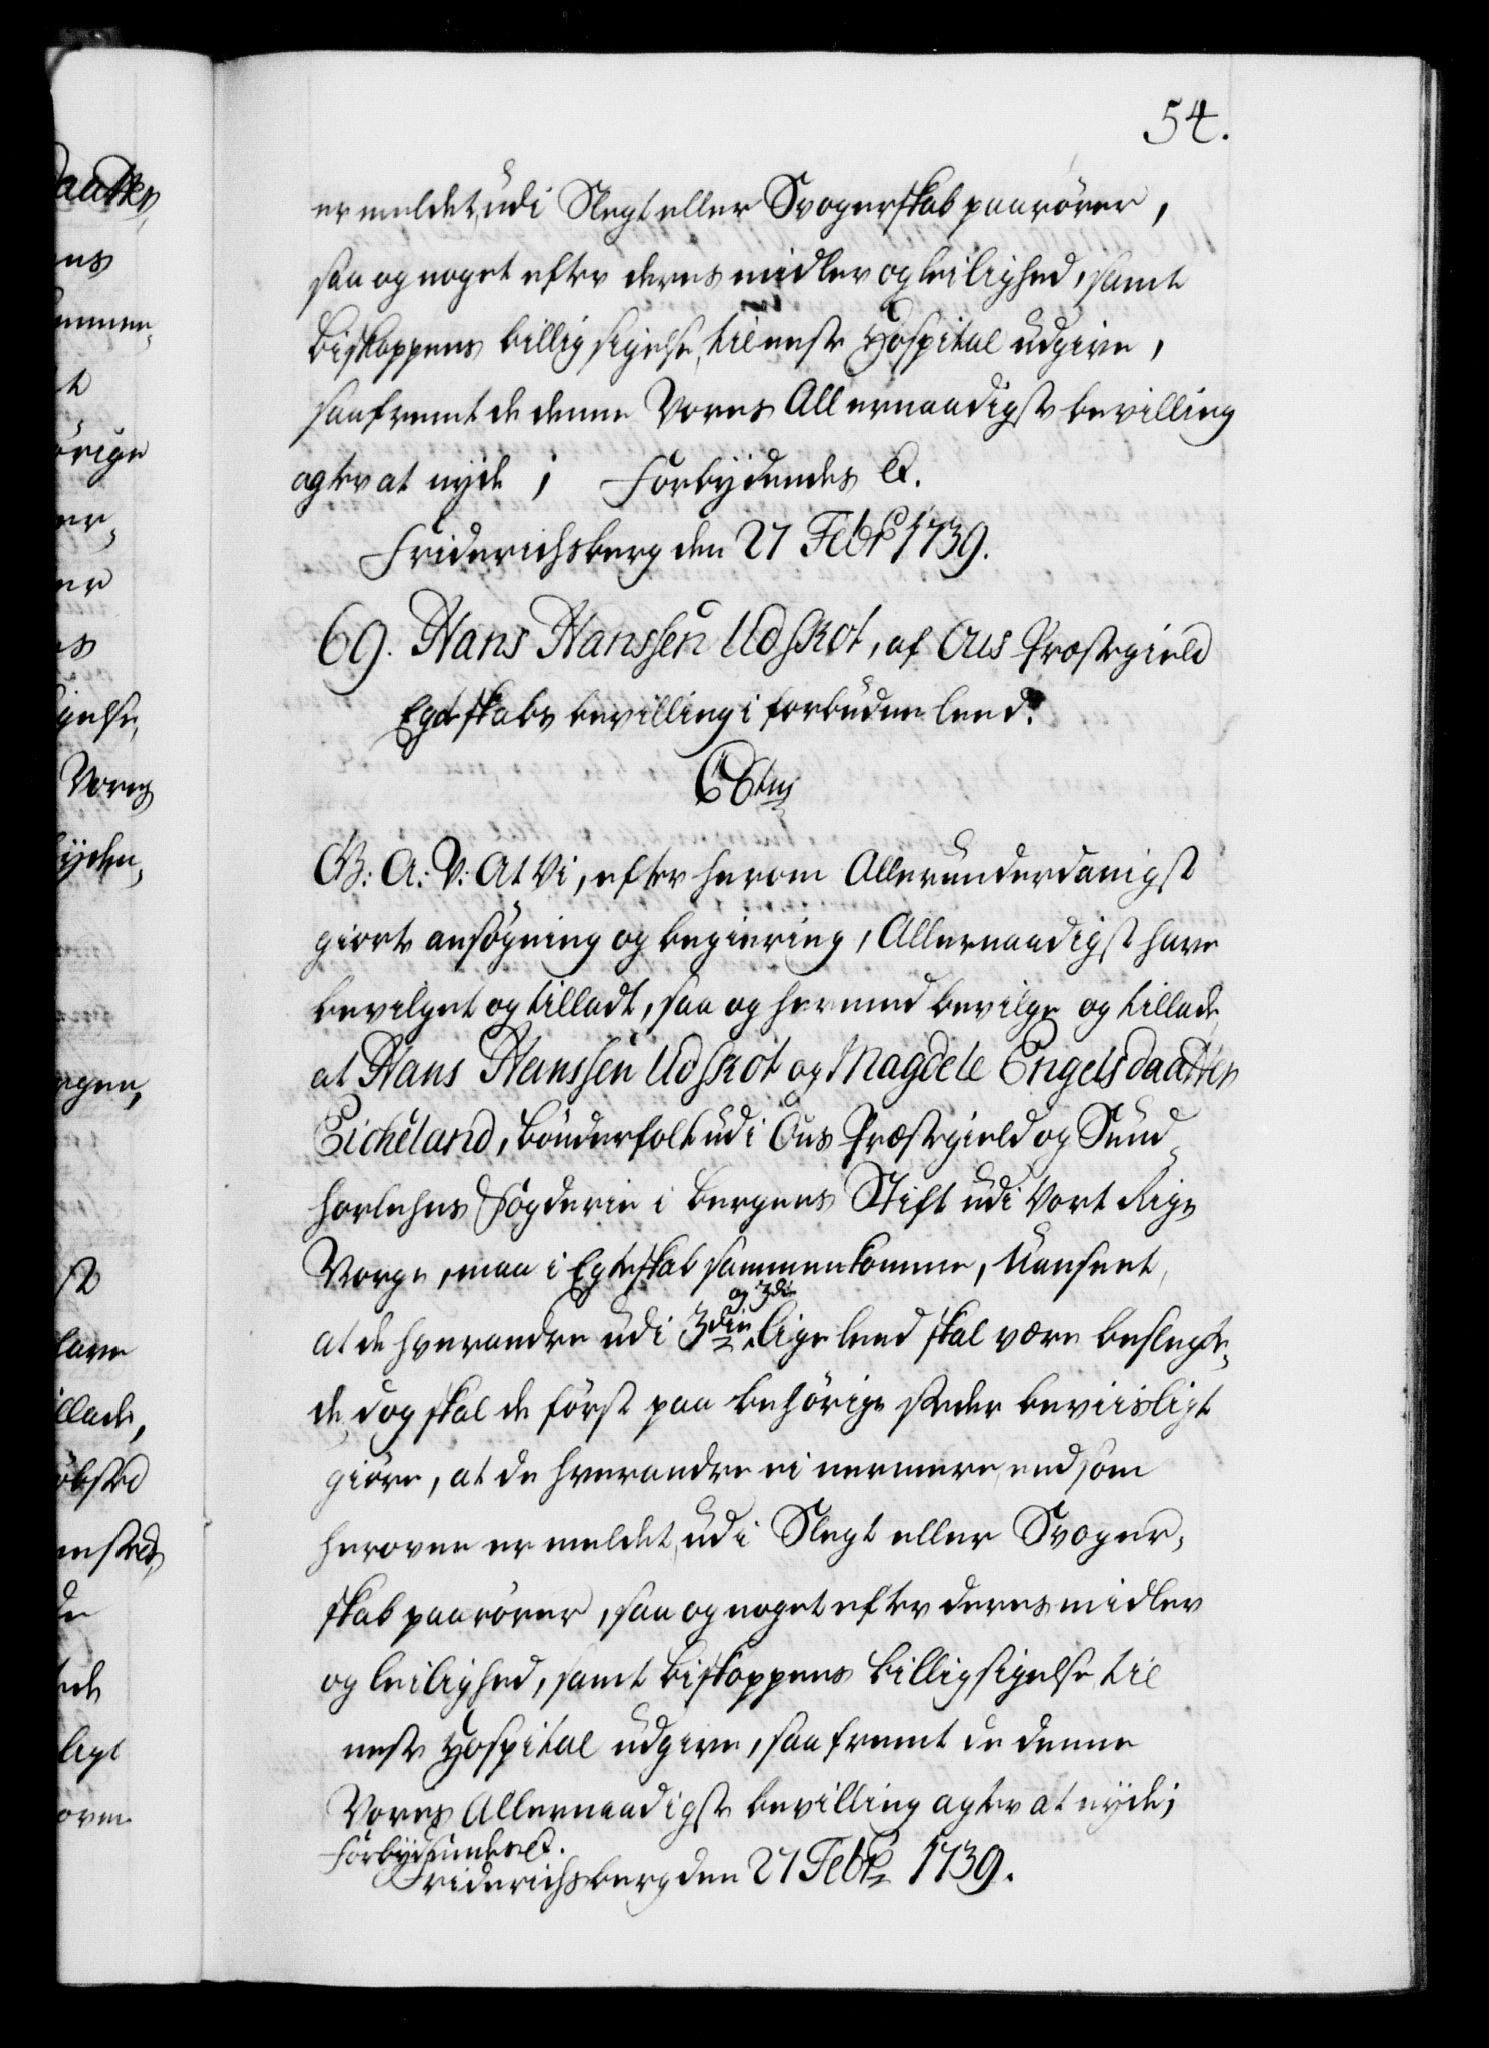 54.
er meldet, udi Slegt eller Svogerskab paarörer,
saa og noget efter deres midler og leilighed, samt
Biskoppens billigsigelse, til neste Hospital udgive,
saafremt de denne Vores Allernaadigste bevilling
agter at nyde; Forbydendes &.
Friderichsberg den 27 Febr 1739.
69. Hans Hanssen Udskot, af Ous Præstegield
Egteskabs bevilling i forbuden leed.
C 6tus
G: A: V: At Vi, efter herom Allerunderdanigst
giorte ansögning og begiering, Allernaadigst have
bevilget og tilladt, saa og hermed bevilge og tillade,
at Hans Hanssen Udskot og Magdele Engelsdaatter
Eicheland, bönderfolk udi Ous Præstegield og Sund-
horlehns Fögderie i Bergens Stift udi Vort Rige
Norge, maa i Egteskab sammenkomme, Uanseet,
at de hverandre udi 3die og 3die lige leed skal være beslegte-
de, dog skal de först paa behörige steder beviisligt
giöre, at de hverandre ei nermere, end som
heroven er meldet, udi Slegt eller Svoger-
skab paarörer, saa og noget efter deres midler
og leilighed, samt Biskoppens billigsigelse, til
neste Hospital udgive, saafremt de denne
Vores Allernaadigste bevilling agter at nyde;
Forbydendes &.
Friderichsberg den 27 Febr 1739.